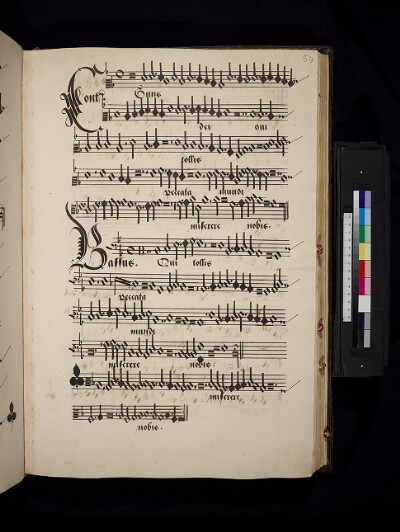 54
Contra
Gnus
dei qui
tollis
peccata mundi
miserere nobis.
Bassus. Qui tollis
peccata
mundi
miserere nobis.
miserere
nobis.